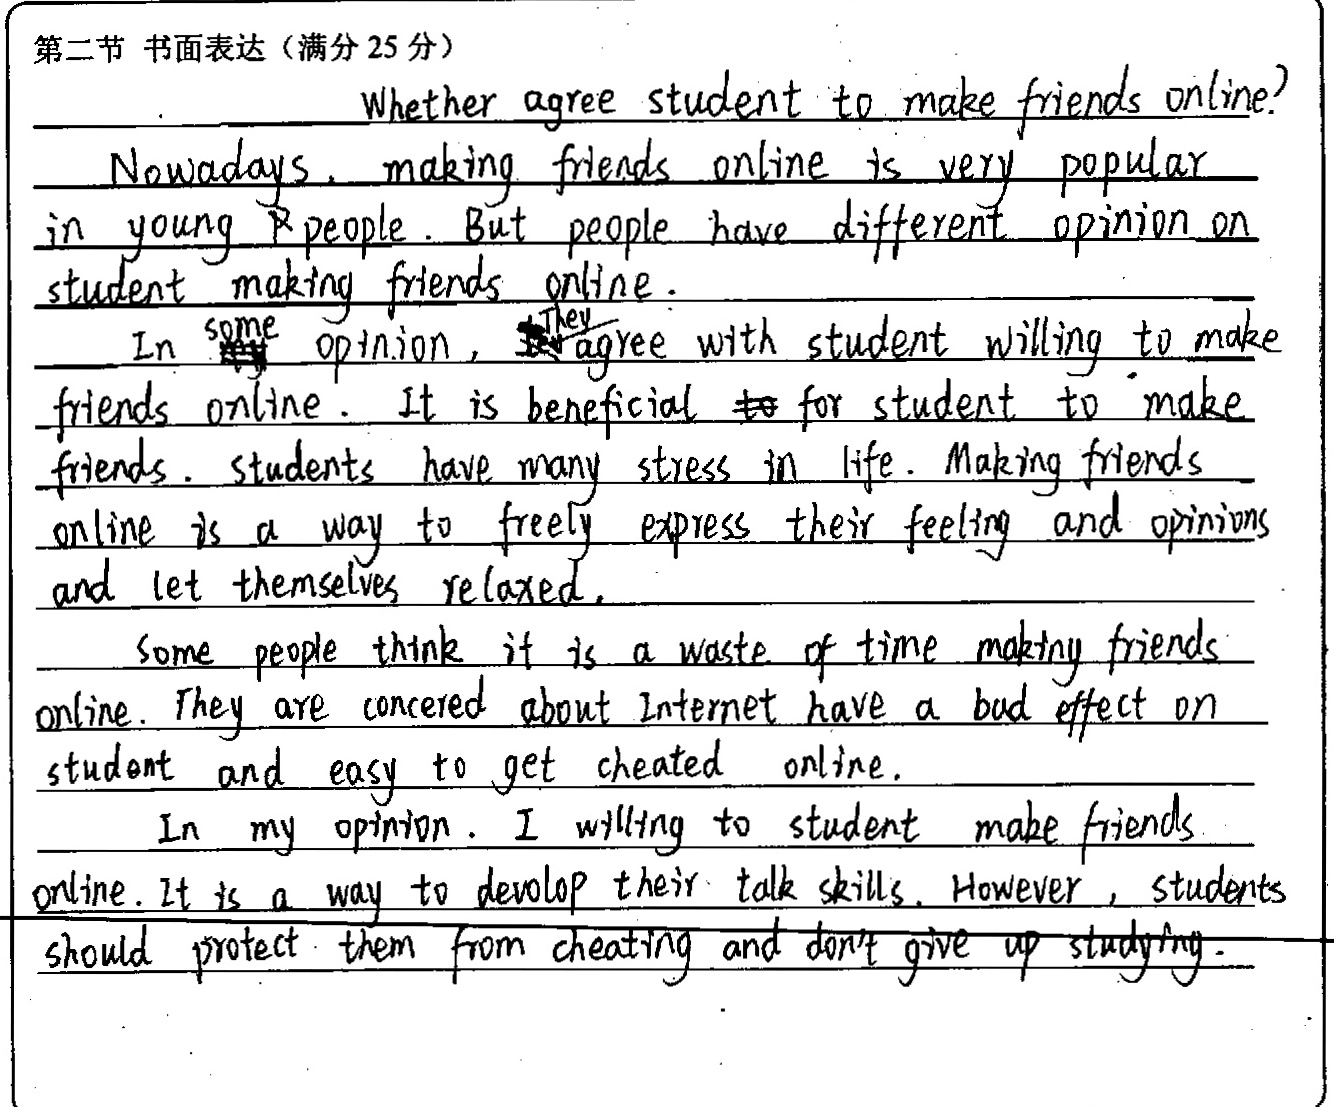 第二节 书面表达（满分 25 分）
Whether agree student to make friends online?
Nowadays. making friends online is very popular
in young people. But people have different opinion on
student making friends online.
In some opinion, They agree with student willing to make
friends online. It is beneficial for student to make
friends. students have many stress in life. Making friends
online is a way to freely express their feeling and opinions
and let themselves relaxed.
Some people think it is a waste of time making friends
online. They are concered about Internet have a bad effect on
student and easy to get cheated online.
In my opinion. I willing to student make friends
online. It is a way to devolop their talk skills. However, students
should protect them from cheating and don't give up studying.